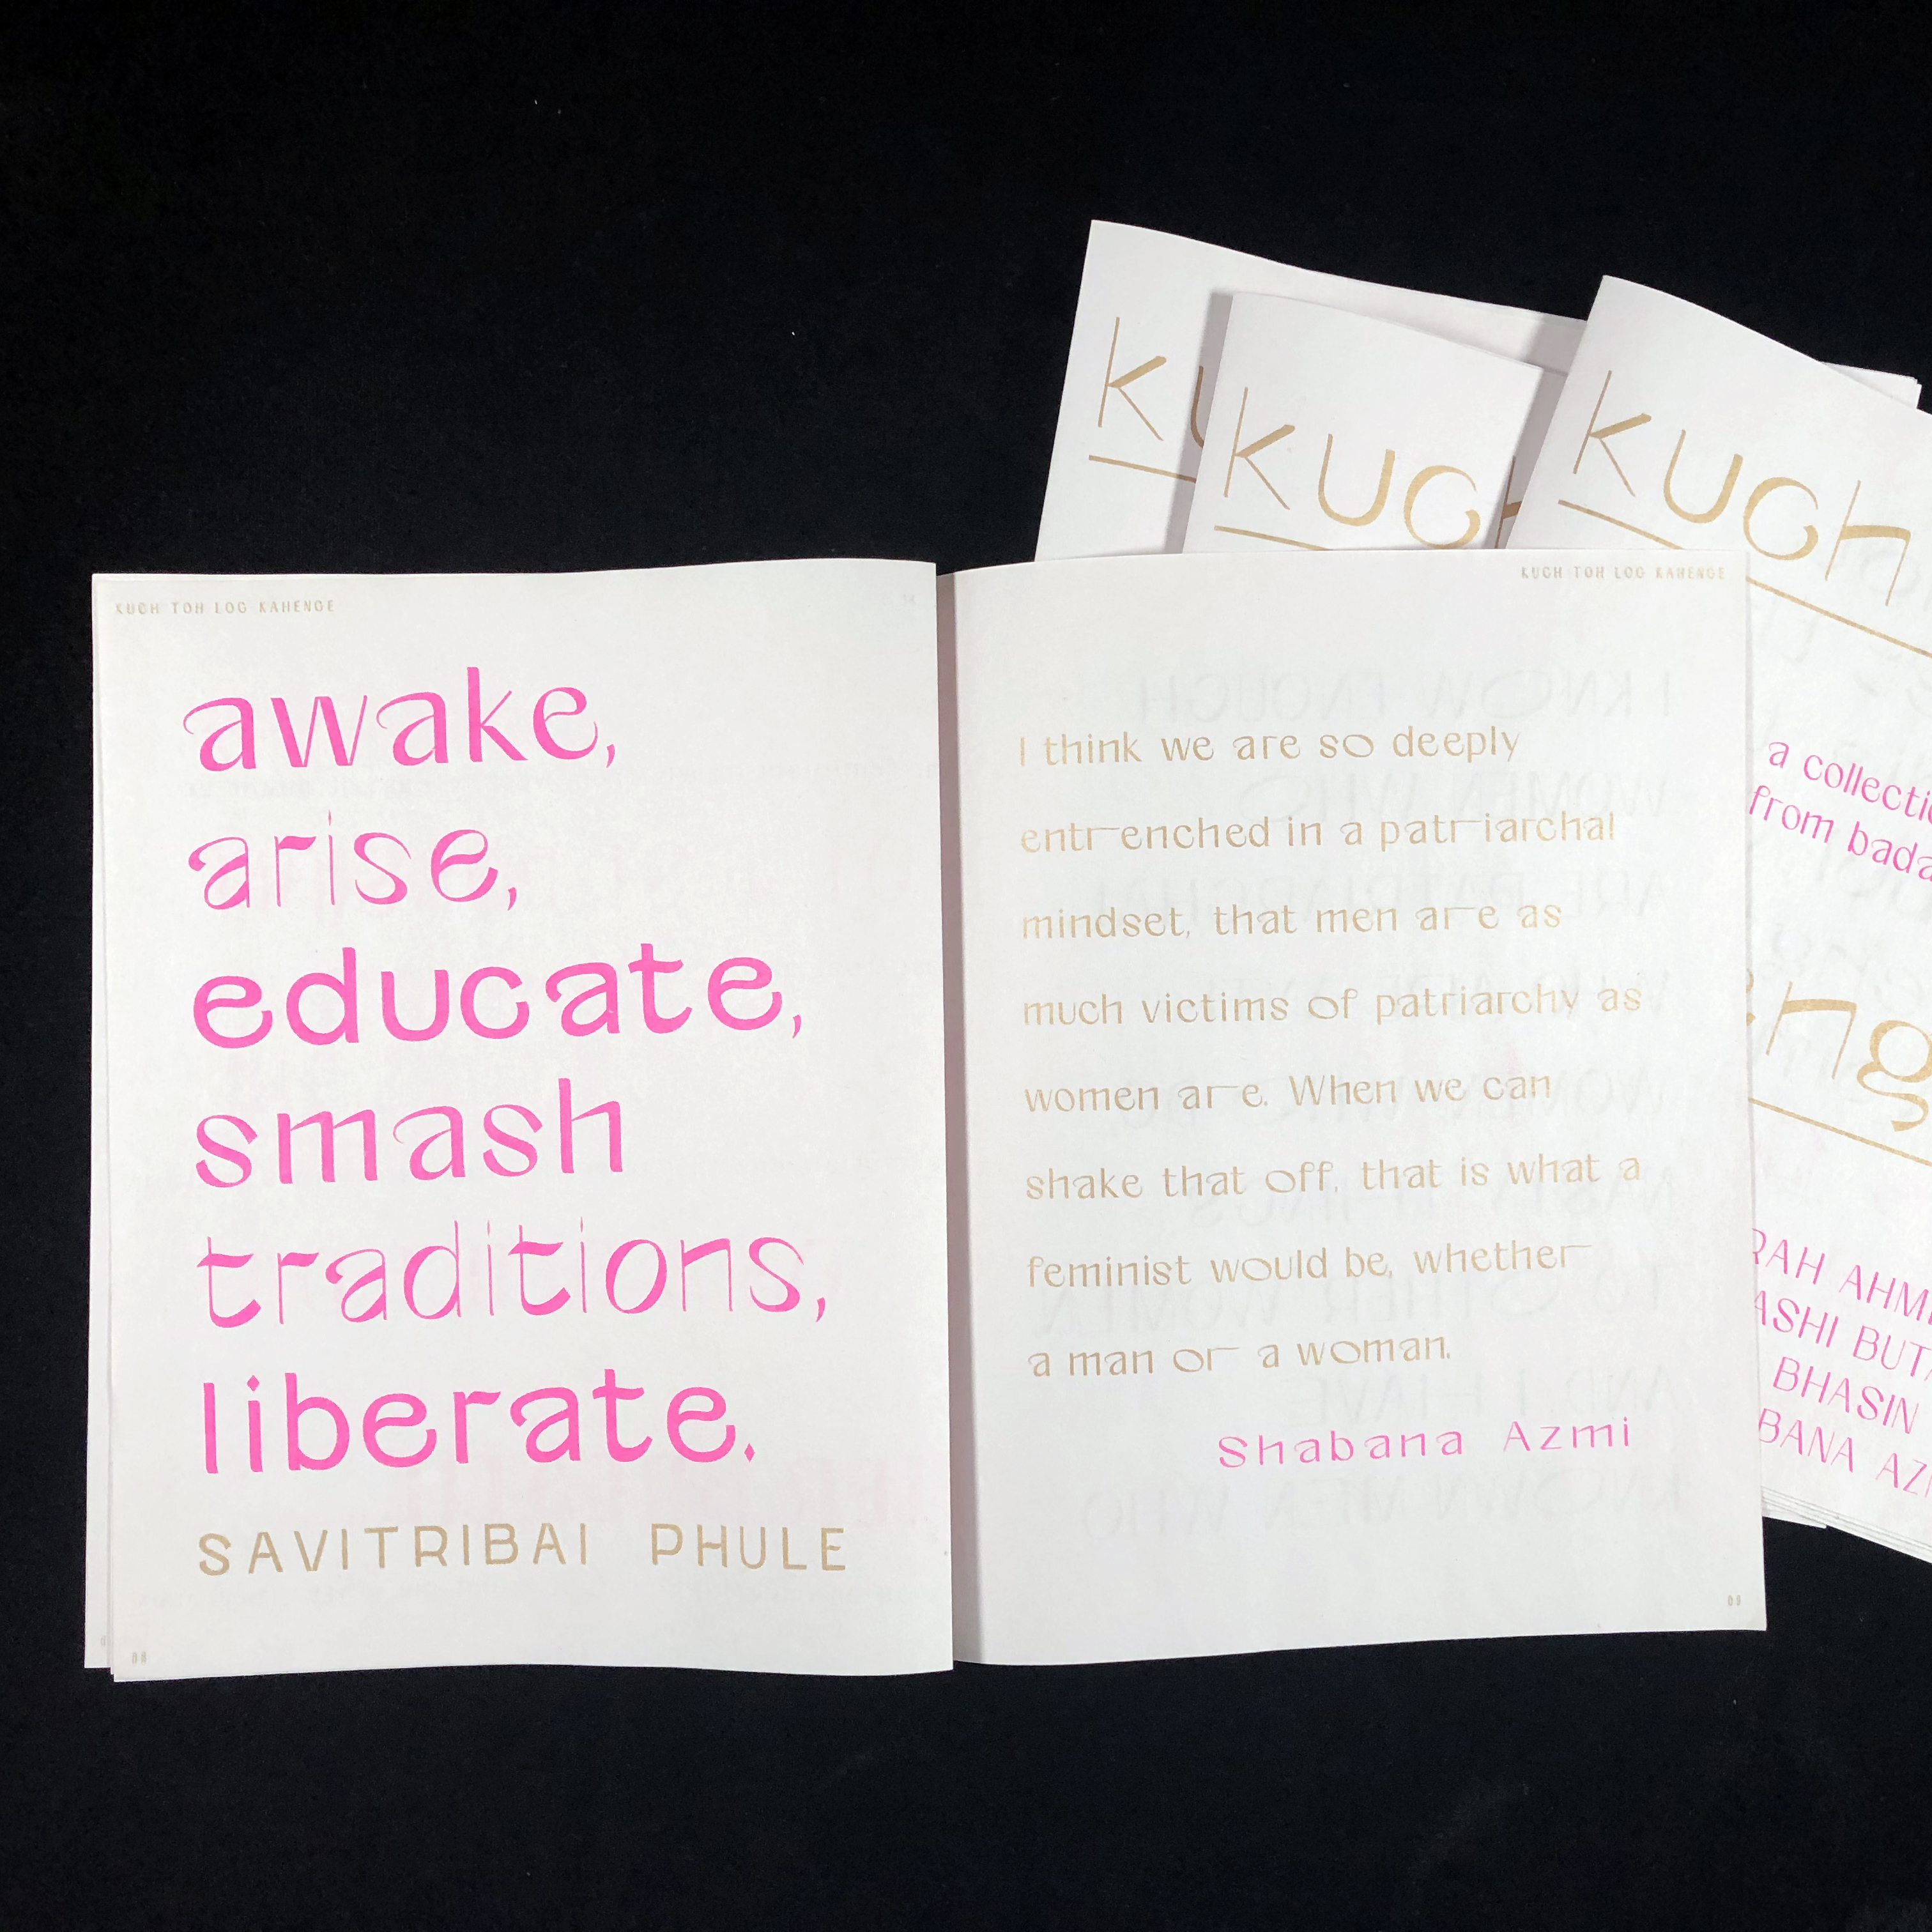 KUCH TOH LOG KAHENGE
awake,
arise,
educate,
smash
traditions,
liberate.
SAVITRIBAI PHULE
08
KUCH TOH LOG KAHENGE
I think we are so deeply
entrenched in a patriarchal
mindset, that men are as
much victims of patriarchy as
women are. When we can
shake that off, that is what a
feminist would be, whether
a man or a woman.
Shabana Azmi
09
ku
kuch
kuch
a collecti
from bada
eng
RAH AHM
ASHI BUTA
BHASIN
BANA AZ